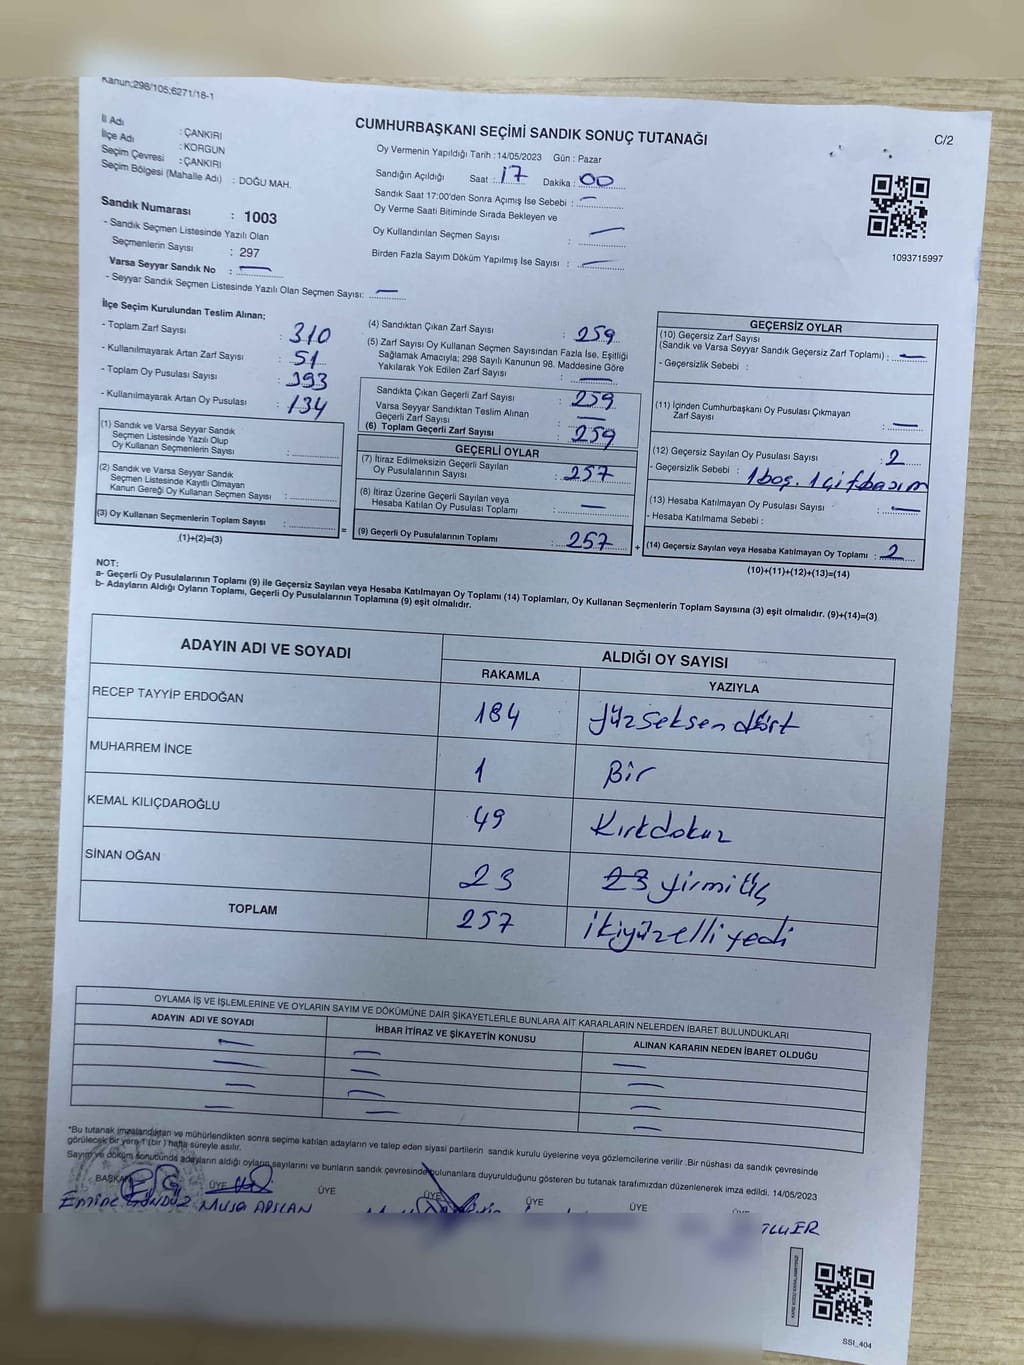 Kanun;298/105;6271/18-1
İl Adı : ÇANKIRI
İlçe Adı : KORGUN
Seçim Çevresi : ÇANKIRI
Seçim Bölgesi (Mahalle Adı) : DOĞU MAH.
Sandık Numarası : 1003
- Sandık Seçmen Listesinde Yazılı Olan
Seçmenlerin Sayısı : 297
Varsa Seyyar Sandık No : —
- Seyyar Sandık Seçmen Listesinde Yazılı Olan Seçmen Sayısı: —
CUMHURBAŞKANI SEÇİMİ SANDIK SONUÇ TUTANAĞI
C/2
Oy Vermenin Yapıldığı Tarih : 14/05/2023 Gün : Pazar
Sandığın Açıldığı Saat : 17 Dakika : 00
Sandık Saat 17:00'den Sonra Açımış İse Sebebi : —
Oy Verme Saati Bitiminde Sırada Bekleyen ve
Oy Kullandırılan Seçmen Sayısı : —
Birden Fazla Sayım Döküm Yapılmış İse Sayısı : —
1093715997
İlçe Seçim Kurulundan Teslim Alınan;
- Toplam Zarf Sayısı : 310
- Kullanılmayarak Artan Zarf Sayısı : 51
- Toplam Oy Pusulası Sayısı : 393
- Kullanılmayarak Artan Oy Pusulası : 134
(1) Sandık ve Varsa Seyyar Sandık
Seçmen Listesinde Yazılı Olup
Oy Kullanan Seçmenlerin Sayısı :
(2) Sandık ve Varsa Seyyar Sandık
Seçmen Listesinde Kayıtlı Olmayan
Kanun Gereği Oy Kullanan Seçmen Sayısı :
(3) Oy Kullanan Seçmenlerin Toplam Sayısı :
(1)+(2)=(3)
=
(4) Sandıktan Çıkan Zarf Sayısı : 259
(5) Zarf Sayısı Oy Kullanan Seçmen Sayısından Fazla İse, Eşitliği
Sağlamak Amacıyla; 298 Sayılı Kanunun 98. Maddesine Göre
Yakılarak Yok Edilen Zarf Sayısı : —
Sandıkta Çıkan Geçerli Zarf Sayısı : 259
Varsa Seyyar Sandıktan Teslim Alınan
Geçerli Zarf Sayısı : —
(6) Toplam Geçerli Zarf Sayısı : 259
GEÇERLİ OYLAR
(7) İtiraz Edilmeksizin Geçerli Sayılan
Oy Pusulalarının Sayısı : 257
(8) İtiraz Üzerine Geçerli Sayılan veya
Hesaba Katılan Oy Pusulası Toplamı : —
(9) Geçerli Oy Pusulalarının Toplamı : 257
+
GEÇERSİZ OYLAR
(10) Geçersiz Zarf Sayısı
(Sandık ve Varsa Seyyar Sandık Geçersiz Zarf Toplamı) : —
- Geçersizlik Sebebi :
(11) İçinden Cumhurbaşkanı Oy Pusulası Çıkmayan
Zarf Sayısı : —
(12) Geçersiz Sayılan Oy Pusulası Sayısı : 2
- Geçersizlik Sebebi : 1 boş. 1 çift basım
(13) Hesaba Katılmayan Oy Pusulası Sayısı : —
- Hesaba Katılmama Sebebi :
(14) Geçersiz Sayılan veya Hesaba Katılmayan Oy Toplamı : 2
(10)+(11)+(12)+(13)=(14)
NOT:
a- Geçerli Oy Pusulalarının Toplamı (9) ile Geçersiz Sayılan veya Hesaba Katılmayan Oy Toplamı (14) Toplamları, Oy Kullanan Seçmenlerin Toplam Sayısına (3) eşit olmalıdır. (9)+(14)=(3)
b- Adayların Aldığı Oyların Toplamı, Geçerli Oy Pusulalarının Toplamına (9) eşit olmalıdır.
ADAYIN ADI VE SOYADI ALDIĞI OY SAYISI
RAKAMLA YAZIYLA
RECEP TAYYİP ERDOĞAN 184 Yüzseksen dört
MUHARREM İNCE 1 Bir
KEMAL KILIÇDAROĞLU 49 Kırkdokuz
SİNAN OĞAN 23 23 yirmi üç
TOPLAM 257 ikiyüzelliyedi
OYLAMA İŞ VE İŞLEMLERİNE VE OYLARIN SAYIM VE DÖKÜMÜNE DAİR ŞİKAYETLERLE BUNLARA AİT KARARLARIN NELERDEN İBARET BULUNDUKLARI
ADAYIN ADI VE SOYADI İHBAR İTİRAZ VE ŞİKAYETİN KONUSU ALINAN KARARIN NEDEN İBARET OLDUĞU
— — —
— — —
— — —
— — —
*Bu tutanak imzalandıktan ve mühürlendikten sonra seçime katılan adayların ve talep eden siyasi partilerin sandık kurulu üyelerine veya gözlemcilerine verilir .Bir nüshası da sandık çevresinde
görülecek bir yere 1 (bir ) hafta süreyle asılır.
Sayım ve döküm sonucunda adayların aldığı oyların sayılarını ve bunların sandık çevresinde bulunanlara duyurulduğunu gösteren bu tutanak tarafımızdan düzenlenerek imza edildi. 14/05/2023
BAŞKAN ÜYE ÜYE ÜYE ÜYE ÜYE ÜYE
Emine GÜNDÜZ MUSA ARSLAN
SSI_404